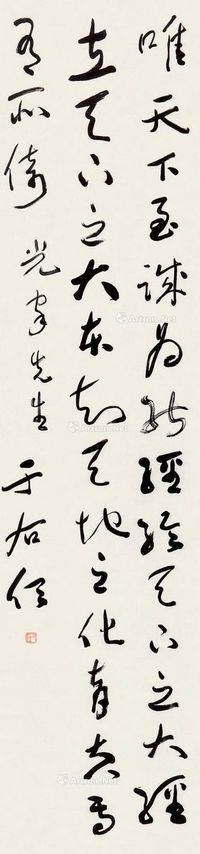 唯天下至誠為能經綸天下之大經
立天下之大本知天地之化育夫焉
有所倚 光 先生 于右任